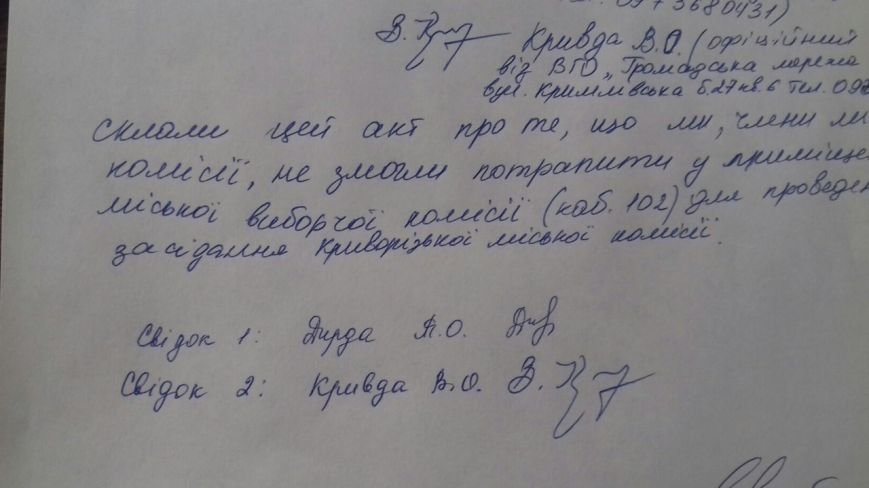 0973680431)
В. Кр Кривда В.О. (офіційний
від ВГО „Громадська мережа
вул. Кримська б.27 кв.6 тел. 09
склали цей акт про те, що ми, члени
комісії, не змогли потрапити у приміще
міської виборчої комісії (каб. 102) для проведен
засідання Криворізької міської комісії.
Свідок 1: Дирда А.О.
Свідок 2: Кривда В.О. В. Кр